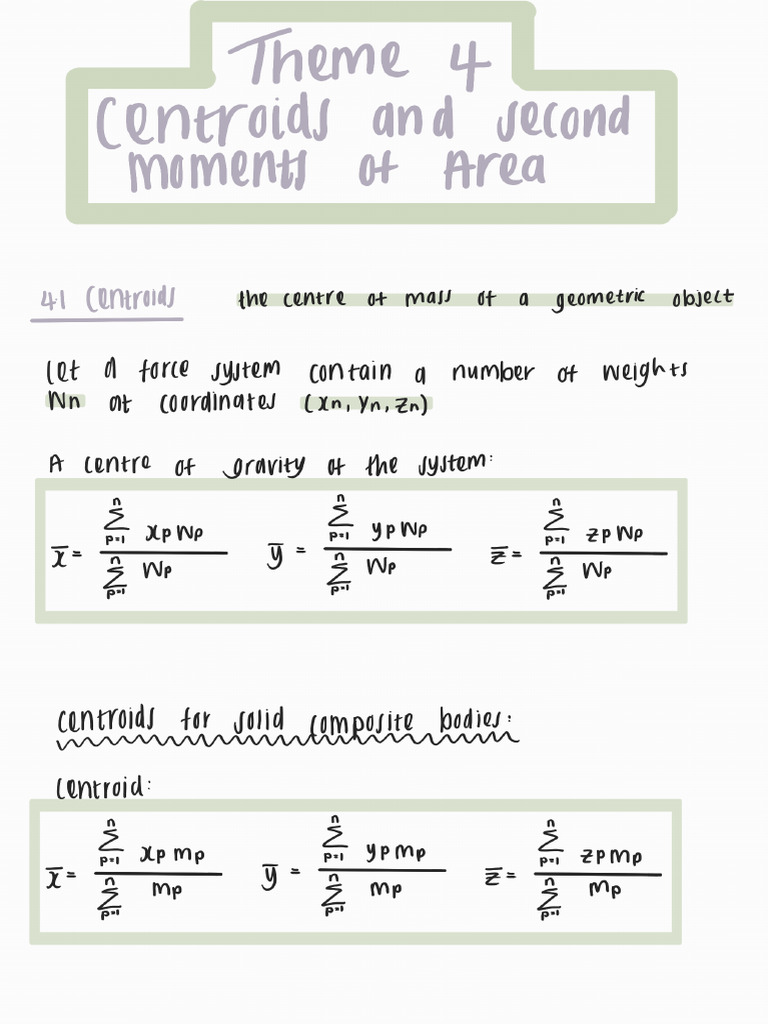 Theme 4
Centroids and second
moments of Area
4.1 Centroids the centre of mass of a geometric object
Let a force system contain a number of weights
Wn at coordinates (xn, yn, zn)
A centre of gravity of the system:
x̄ = n∑p=1 xp Wp / n∑p=1 Wp ȳ = n∑p=1 yp Wp / n∑p=1 Wp z̄ = n∑p=1 zp Wp / n∑p=1 Wp
centroids for solid composite bodies:
Centroid:
x̄ = n∑p=1 xp mp / n∑p=1 mp ȳ = n∑p=1 yp mp / n∑p=1 mp z̄ = n∑p=1 zp mp / n∑p=1 mp